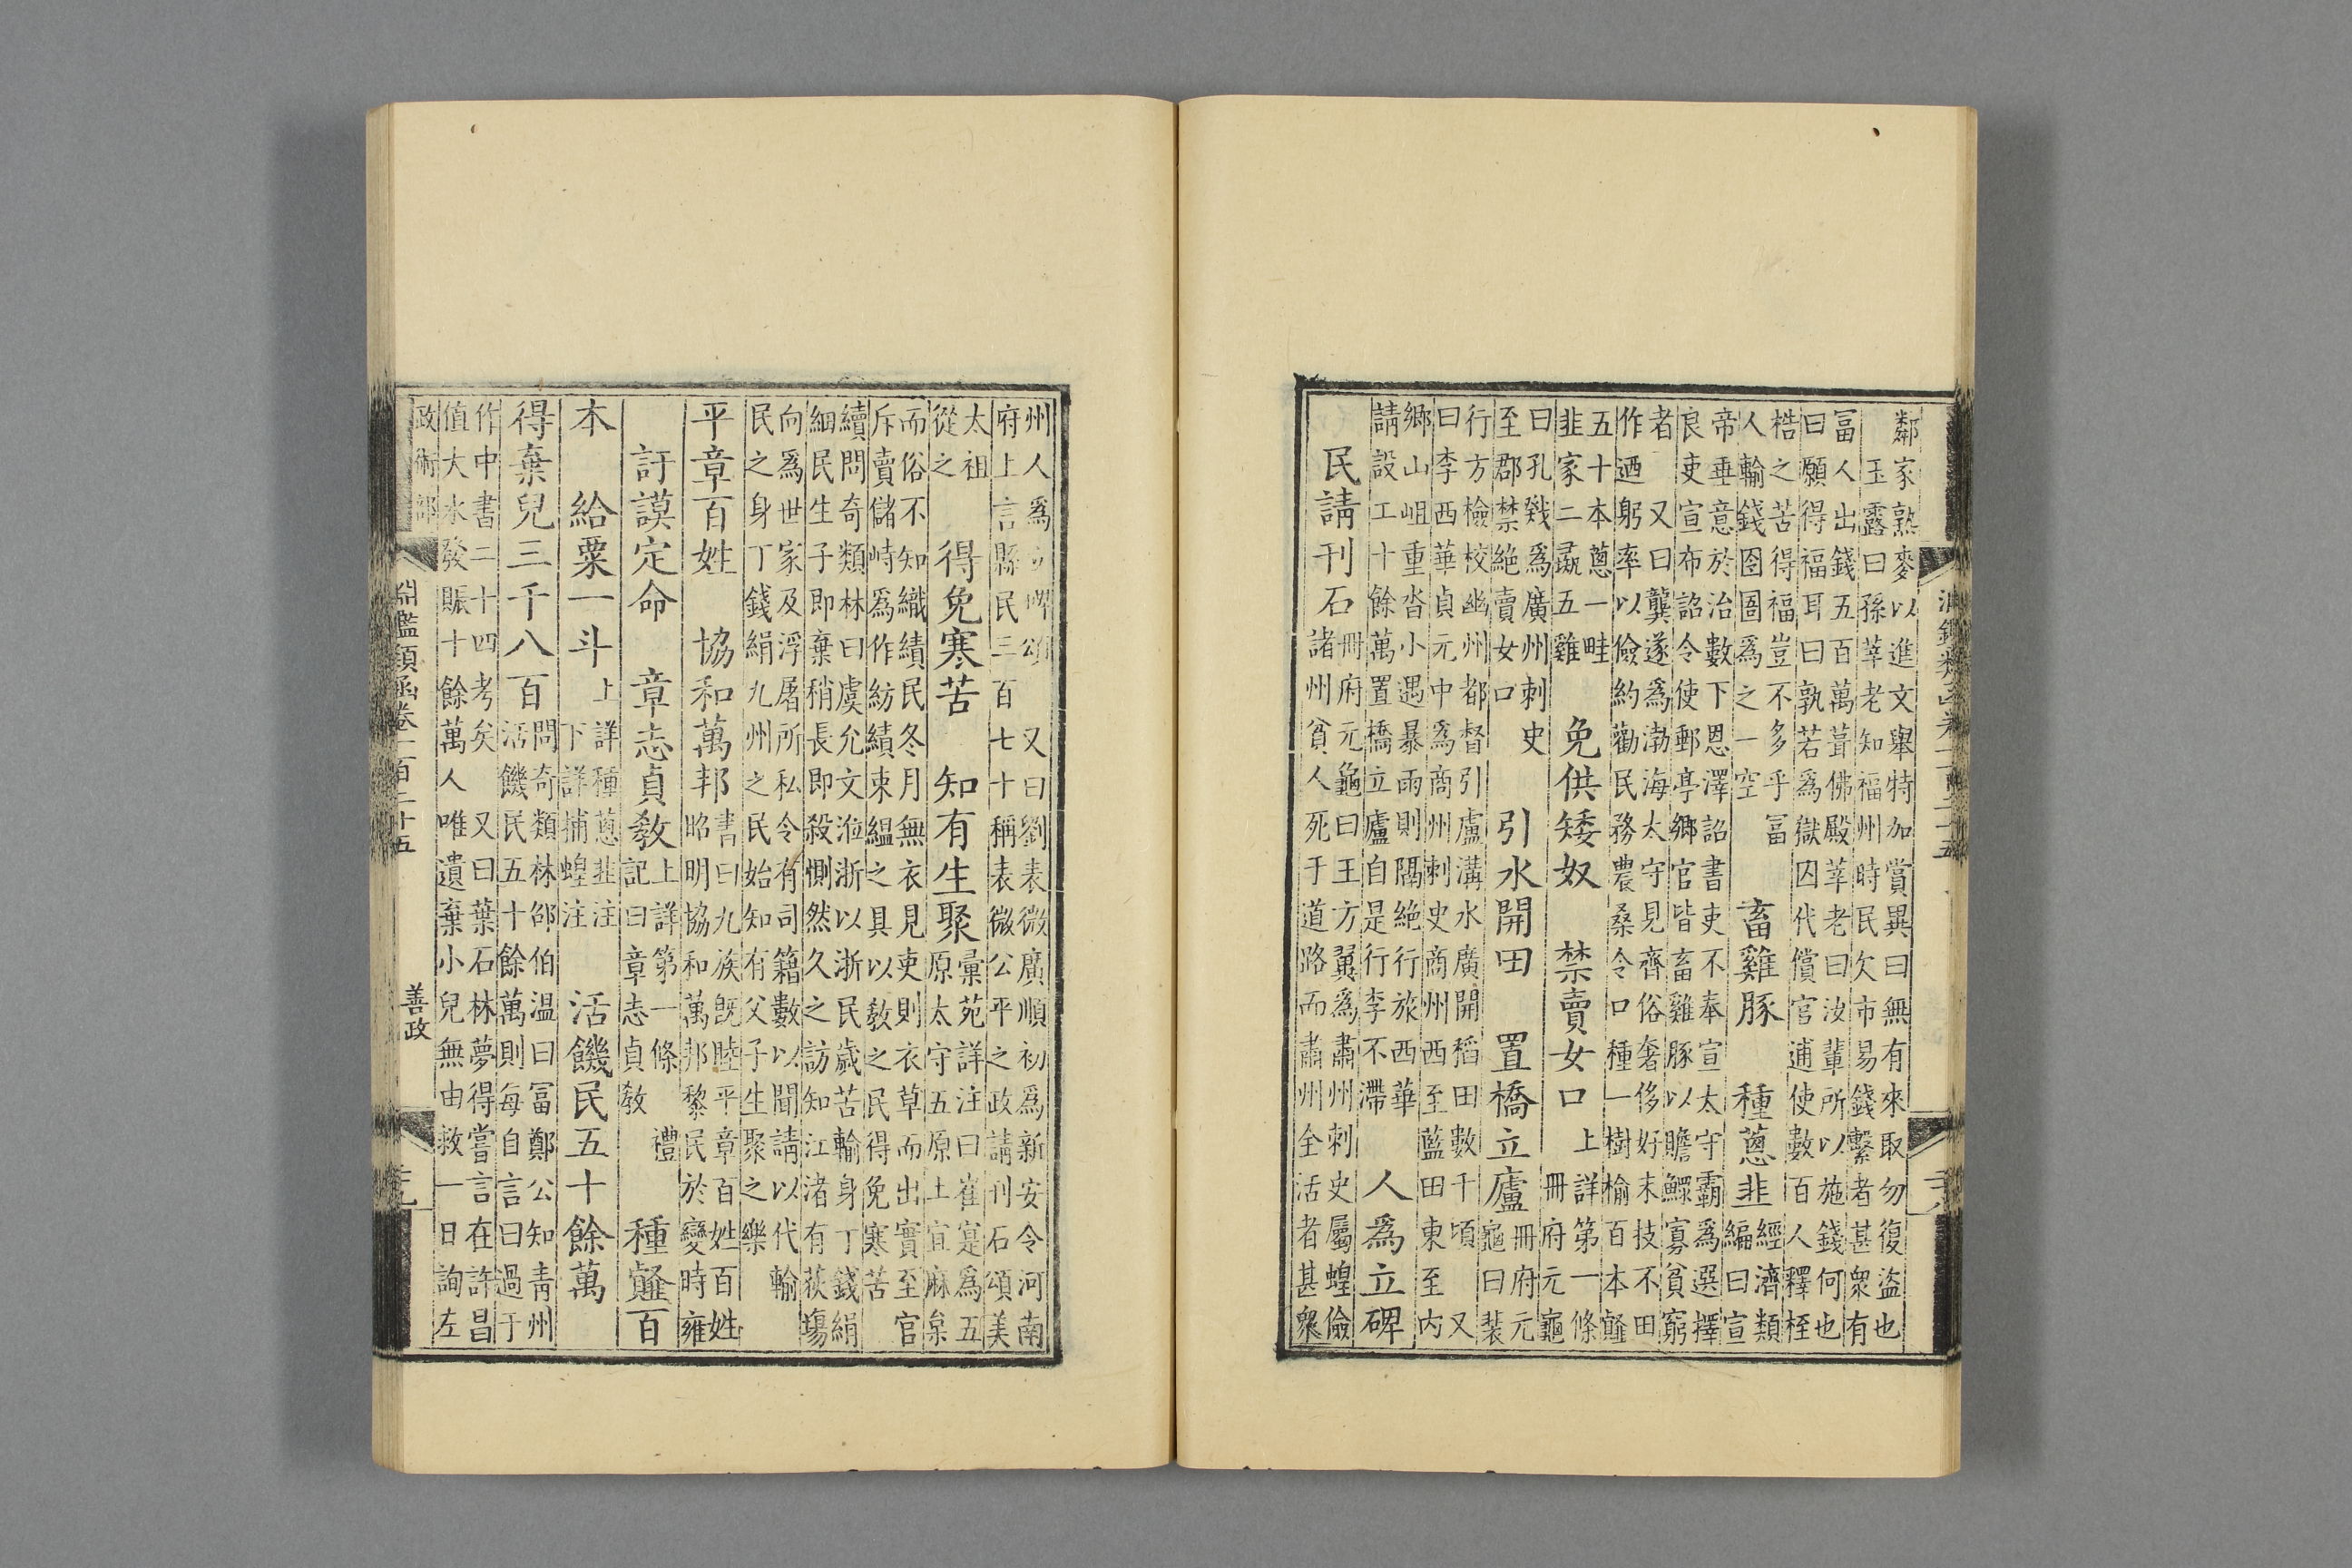 鄰家熟麥以進文舉特加賞異曰無有來取勿復盜也
玉露曰孫莘老知福州時民欠市易錢繫者甚衆有
富人出錢五百萬葺佛殿莘老曰汝輩所以施錢何也
曰願得福耳曰孰若爲獄囚代償官逋使數百人釋桎
梏之苦得福豈不多乎富
人輸錢囹圄爲之一空
畜雞豚 種蔥韭
經濟類
編曰宣
帝垂意於治數下恩澤詔書吏不奉宣太守霸爲選擇
良吏宣布詔令使郵亭鄉官皆畜雞豚以贍鰥寡貧窮
者 又曰龔遂爲渤海太守見齊俗奢侈好末技不田
作迺躬率以儉約勸民務農桑令口種一樹榆百本䪥
五十本蔥一畦
韭家二彘五雞
免供矮奴 禁賣女口
上詳第一條
冊府元龜
曰孔戣爲廣州刺史
至郡禁絕賣女口
引水開田 置橋立廬
冊府元
龜曰裴
行方檢校幽州都督引盧溝水廣開稻田數千頃 又
曰李西華貞元中爲商州刺史商州西至藍田東至内
鄉山岨重沓小遇暴雨則隔絕行旅西華
請設工十餘萬置橋立廬自是行李不滯
人爲立碑
民請刊石
冊府元龜曰王方翼爲肅州刺史屬蝗儉
諸州貧人死于道路而肅州全活者甚衆
州人爲立碑頌 又曰劉表微廣順初爲新安令河南
府上言縣民三百七十稱表微公平之政請刊石頌美
太祖
從之
得免寒苦 知有生聚
彙苑詳注曰崔寔爲五
原太守五原土宜麻枲
而俗不知織績民冬月無衣見吏則衣草而出寔至官
斥賣儲峙爲作紡績束縕之具以教之民得免寒苦
續問奇類林曰虞允文涖浙以浙民歲苦輸身丁錢絹
細民生子即棄稍長即殺惻然久之訪知江渚有荻塲
向爲世家及浮屠所私令有司籍數以聞請以代輸
民之身丁錢絹九州之民始知有父子生聚之樂
平章百姓 協和萬邦
書曰九族既睦平章百姓百姓
昭明協和萬邦黎民於變時雍
訏謨定命 章志貞教
上詳第一條 禮
記曰章志貞教
種䪥百
本 給粟一斗
上詳種蔥韭注
下詳捕蝗注
活饑民五十餘萬
得棄兒三千八百
問奇類林邵伯温曰富鄭公知青州
活饑民五十餘萬則每自言曰過于
作中書二十四考矣 又曰葉石林夢得嘗言在許昌
值大水發賑十餘萬人唯遺棄小兒無由救一日詢左
政術部
淵鑑類函卷一百二十五
善政